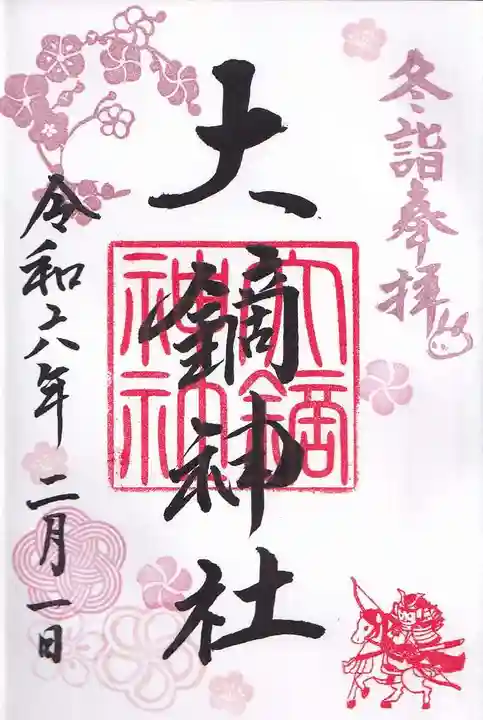 冬詣奉拝
大鏑神社
大鏑神社
令和六年 二月一日